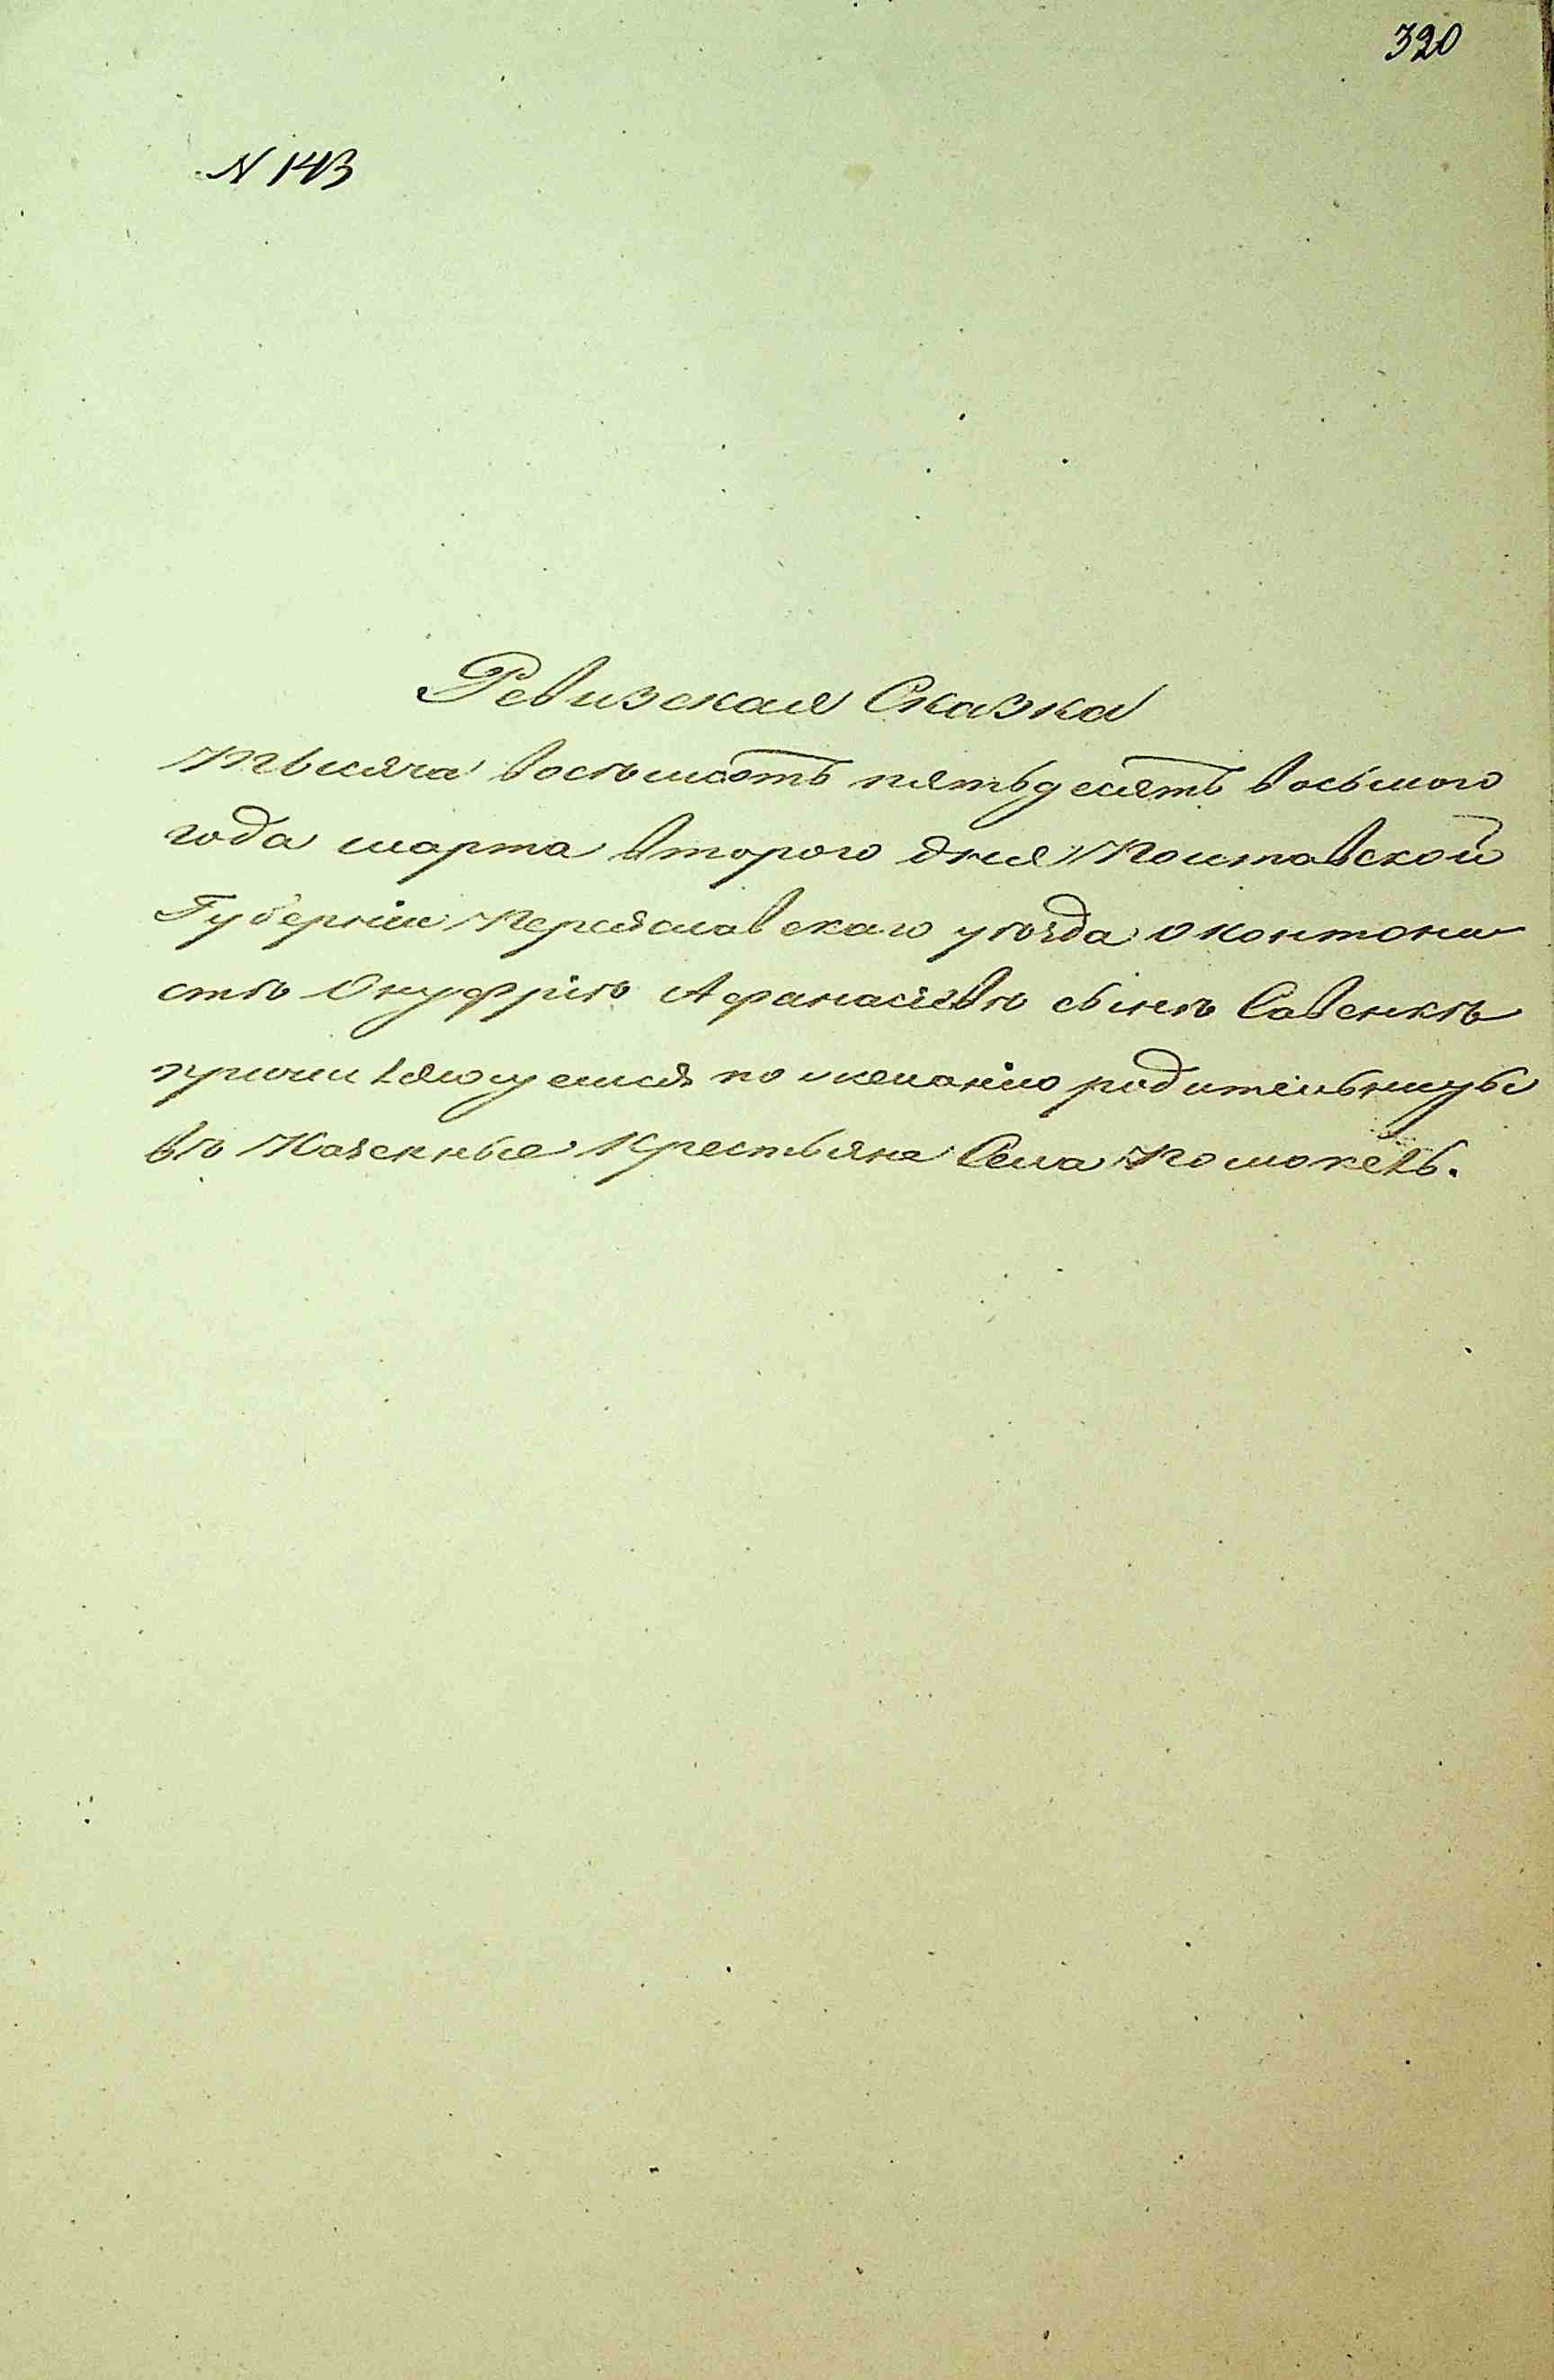 320
N 143
Ревизская Сказка
Тысяча восьмсотъ пятьдесятъ восьмого
года марта второго дня Полтавской
Губерніи Переяславскаго уѣзда о контони
стѣ Онуфріѣ Афанасіевѣ сынѣ Савенкѣ
причисляющемся по желанію родителы
въ Казенные Крестьяне Села Помоклѣ.